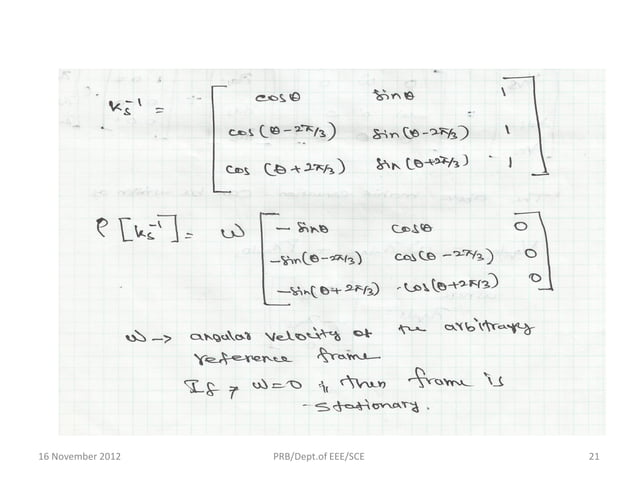 Ks⁻¹ = [ cosθ sinθ 1
cos(θ-2π/3) sin(θ-2π/3) 1
cos (θ+2π/3) sin(θ+2π/3) 1 ]
P[Ks⁻¹] = ω [ -sinθ cosθ 0
-sin(θ-2π/3) cos(θ-2π/3) 0
-sin(θ+2π/3) cos(θ+2π/3) 0 ]
ω -> angular velocity of the arbitrary
reference frame
If, ω=0, then frame is
stationary.
16 November 2012 PRB/Dept.of EEE/SCE 21